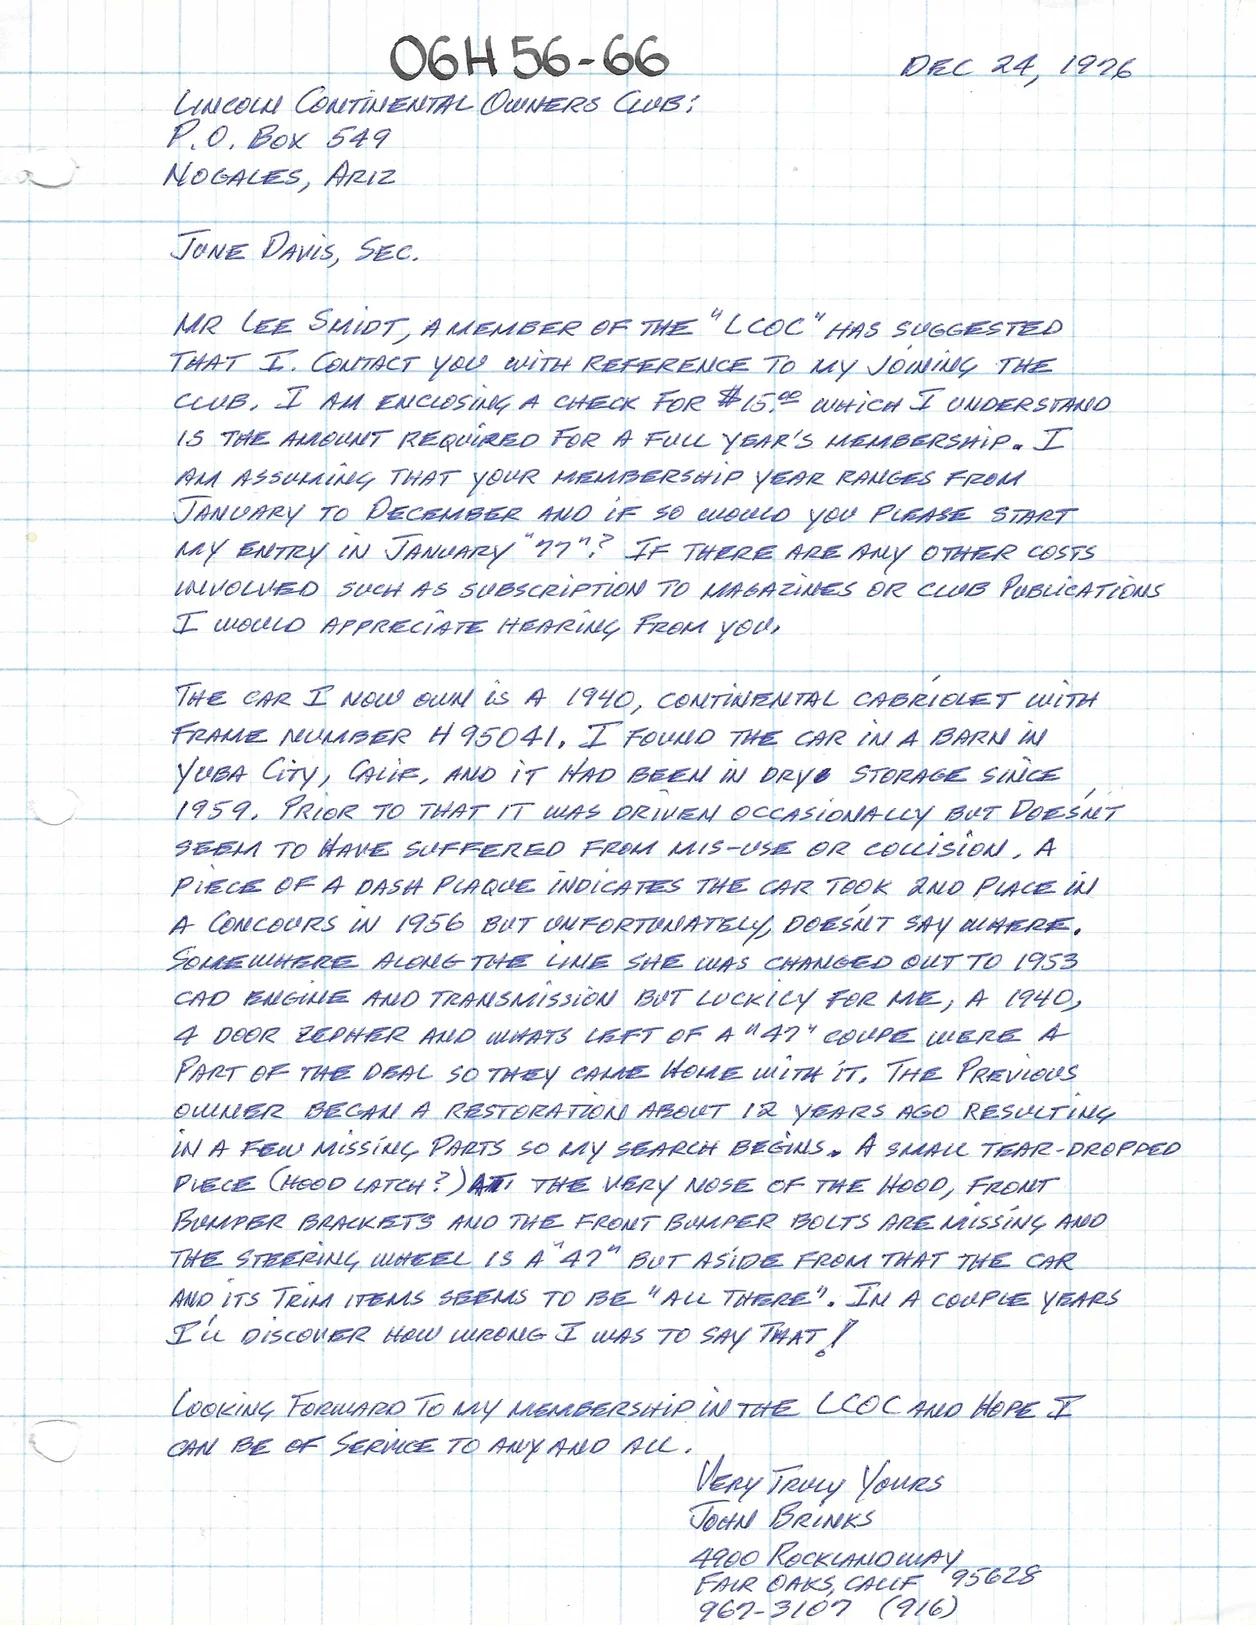 06H56-66
DEC 24, 1976
LINCOLN CONTINENTAL OWNERS CLUB:
P.O. BOX 549
NOGALES, ARIZ
JUNE DAVIS, SEC.
MR LEE SMIDT, A MEMBER OF THE "LCOC" HAS SUGGESTED
THAT I. CONTACT YOU WITH REFERENCE TO MY JOINING THE
CLUB. I AM ENCLOSING A CHECK FOR $15.00 WHICH I UNDERSTAND
IS THE AMOUNT REQUIRED FOR A FULL YEAR'S MEMBERSHIP. I
AM ASSUMING THAT YOUR MEMBERSHIP YEAR RANGES FROM
JANUARY TO DECEMBER AND IF SO WOULD YOU PLEASE START
MY ENTRY IN JANUARY "77"? IF THERE ARE ANY OTHER COSTS
INVOLVED SUCH AS SUBSCRIPTION TO MAGAZINES OR CLUB PUBLICATIONS
I WOULD APPRECIATE HEARING FROM YOU.
THE CAR I NOW OWN IS A 1940, CONTINENTAL CABRIOLET WITH
FRAME NUMBER H95041. I FOUND THE CAR IN A BARN IN
YUBA CITY, CALIF, AND IT HAD BEEN IN DRY STORAGE SINCE
1959. PRIOR TO THAT IT WAS DRIVEN OCCASIONALLY BUT DOESN'T
SEEM TO HAVE SUFFERED FROM MIS-USE OR COLLISION. A
PIECE OF A DASH PLAQUE INDICATES THE CAR TOOK 2ND PLACE IN
A CONCOURS IN 1956 BUT UNFORTUNATELY, DOESN'T SAY WHERE.
SOMEWHERE ALONG THE LINE SHE WAS CHANGED OUT TO 1953
CAD ENGINE AND TRANSMISSION BUT LUCKILY FOR ME, A 1940,
4 DOOR ZEPHER AND WHATS LEFT OF A "47" COUPE WERE A
PART OF THE DEAL SO THEY CAME HOME WITH IT. THE PREVIOUS
OWNER BEGAN A RESTORATION ABOUT 12 YEARS AGO RESULTING
IN A FEW MISSING PARTS SO MY SEARCH BEGINS. A SMALL TEAR-DROPPED
PIECE (HOOD LATCH?) AT THE VERY NOSE OF THE HOOD, FRONT
BUMPER BRACKETS AND THE FRONT BUMPER BOLTS ARE MISSING AND
THE STEERING WHEEL IS A "47" BUT ASIDE FROM THAT THE CAR
AND ITS TRIM ITEMS SEEMS TO BE "ALL THERE". IN A COUPLE YEARS
I'LL DISCOVER HOW WRONG I WAS TO SAY THAT!
LOOKING FORWARD TO MY MEMBERSHIP IN THE LCOC AND HOPE I
CAN BE OF SERVICE TO ANY AND ALL.
VERY TRULY YOURS
JOHN BRINKS
4900 ROCKLAND WAY
FAIR OAKS, CALIF 95628
967-3107 (916)